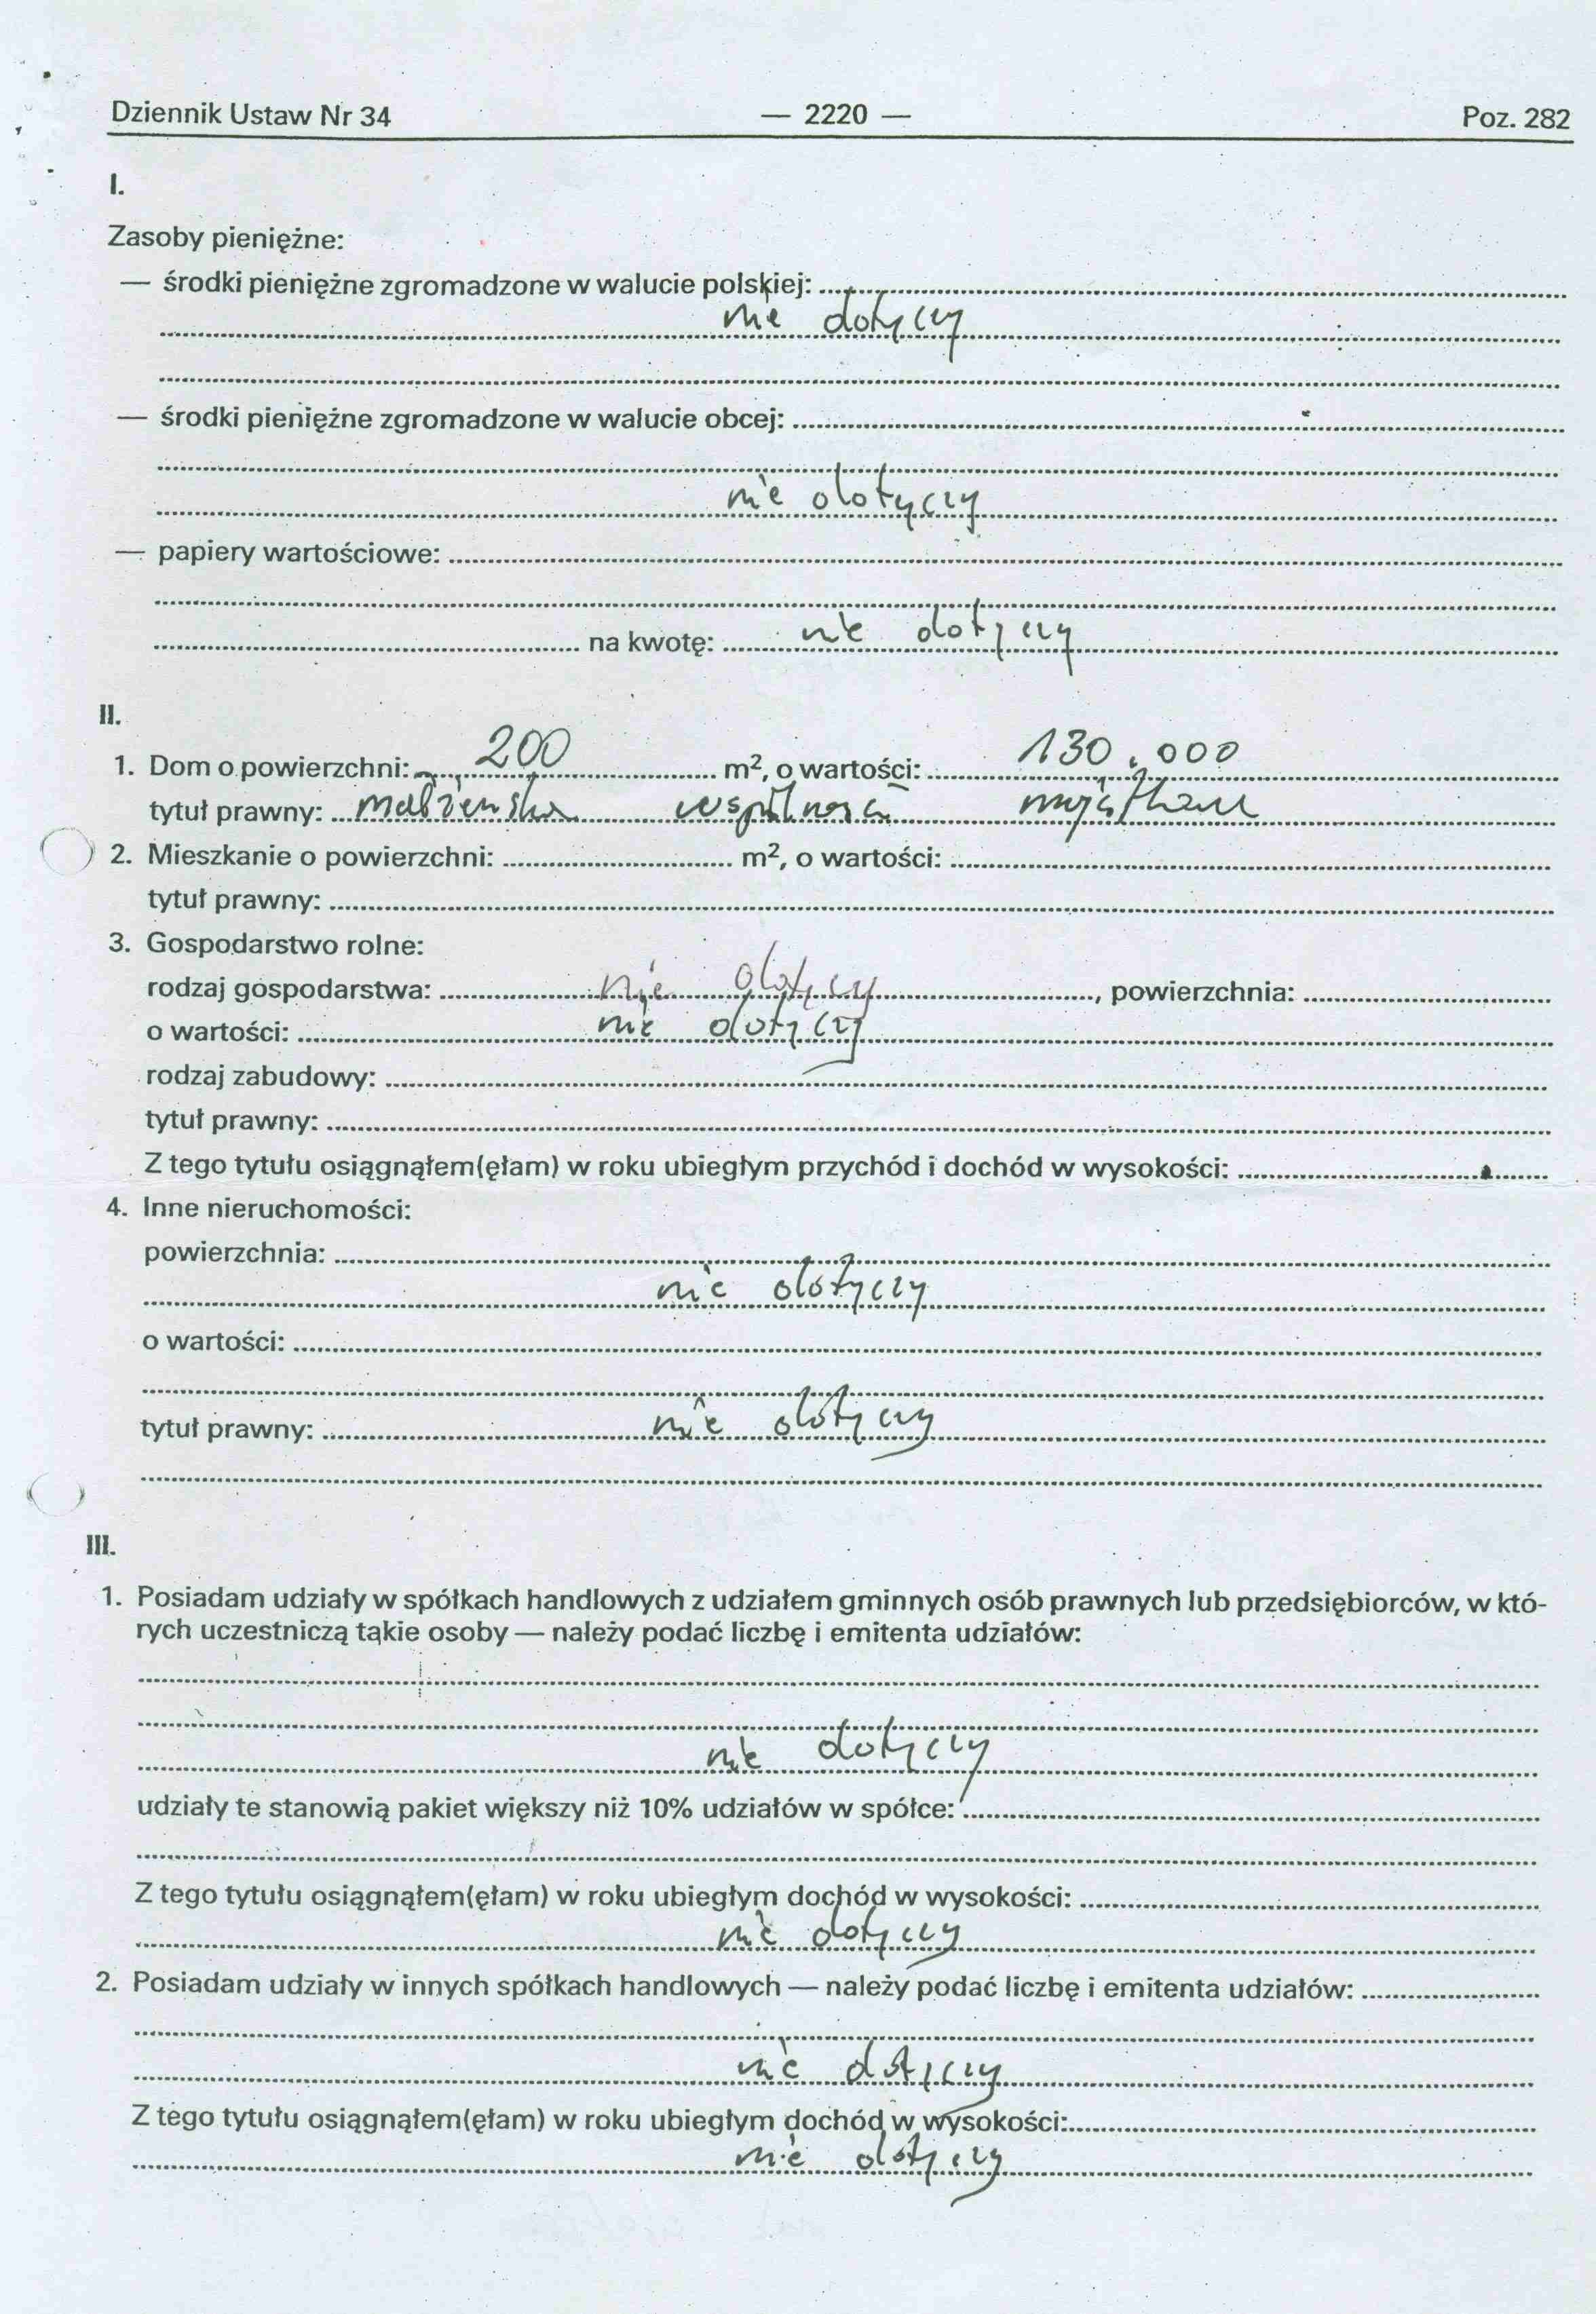 Dziennik Ustaw Nr 34 — 2220 — Poz. 282
I.
Zasoby pieniężne:
— środki pieniężne zgromadzone w walucie polskiej:
nie dotyczy
— środki pieniężne zgromadzone w walucie obcej:
nie dotyczy
— papiery wartościowe:
na kwotę: nie dotyczy
II.
1. Dom o powierzchni: 200 m², o wartości: 130.000
tytuł prawny: małżeńska wspólność majątkowa
2. Mieszkanie o powierzchni: m², o wartości:
tytuł prawny:
3. Gospodarstwo rolne:
rodzaj gospodarstwa: nie dotyczy, powierzchnia:
o wartości: nie dotyczy
rodzaj zabudowy:
tytuł prawny:
Z tego tytułu osiągnąłem(ęłam) w roku ubiegłym przychód i dochód w wysokości:
4. Inne nieruchomości:
powierzchnia:
nie dotyczy
o wartości:
tytuł prawny: nie dotyczy
III.
1. Posiadam udziały w spółkach handlowych z udziałem gminnych osób prawnych lub przedsiębiorców, w któ-
rych uczestniczą takie osoby — należy podać liczbę i emitenta udziałów:
nie dotyczy
udziały te stanowią pakiet większy niż 10% udziałów w spółce:
Z tego tytułu osiągnąłem(ęłam) w roku ubiegłym dochód w wysokości:
nie dotyczy
2. Posiadam udziały w innych spółkach handlowych — należy podać liczbę i emitenta udziałów:
nie dotyczy
Z tego tytułu osiągnąłem(ęłam) w roku ubiegłym dochód w wysokości:
nie dotyczy